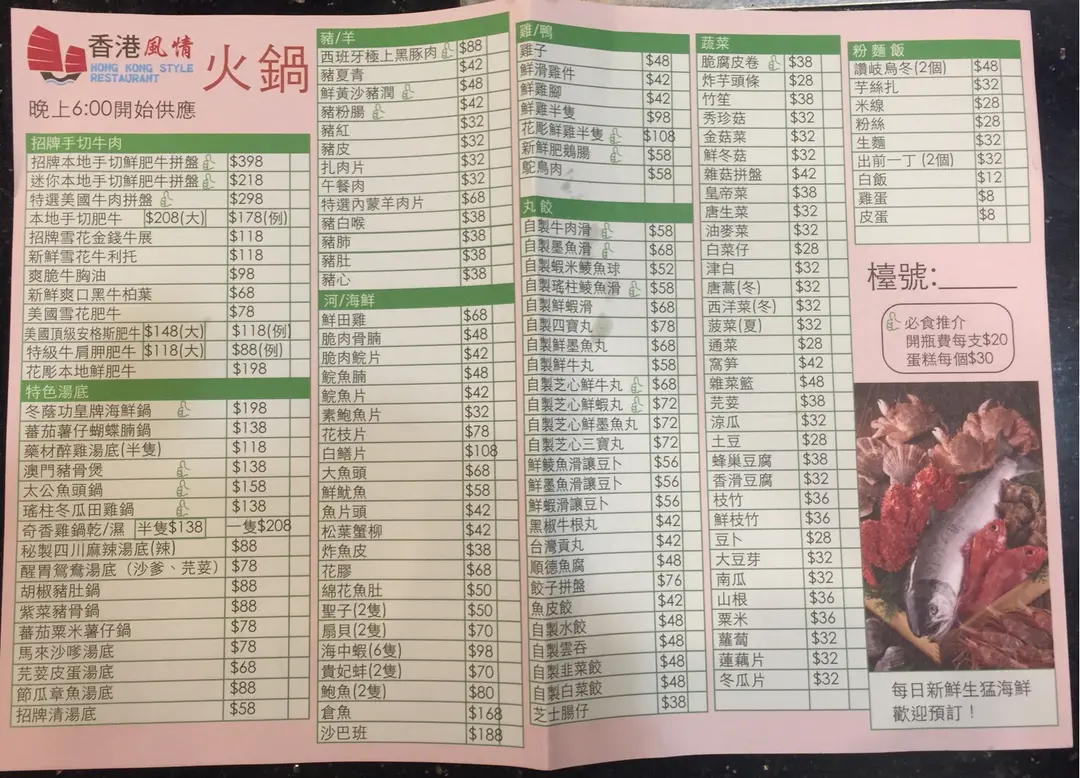 香港風情
HONG KONG STYLE
RESTAURANT
火鍋
晚上6:00開始供應
招牌手切牛肉
招牌本地手切鮮肥牛拼盤 $398
迷你本地手切鮮肥牛拼盤 $218
特選美國牛肉拼盤 $298
本地手切肥牛 $208(大) $178(例)
招牌雪花金錢牛展 $118
新鮮雪花牛利托 $118
爽脆牛胸油 $98
新鮮爽口黑牛柏葉 $68
美國雪花肥牛 $78
美國頂級安格斯肥牛 $148(大) $118(例)
特級牛肩胛肥牛 $118(大) $88(例)
花彫本地鮮肥牛 $198
特色湯底
冬蔭功皇牌海鮮鍋 $198
蕃茄薯仔蝴蝶腩鍋 $138
藥材醉雞湯底(半隻) $118
澳門豬骨煲 $138
太公魚頭鍋 $158
瑤柱冬瓜田雞鍋 $138
奇香雞鍋乾/濕 半隻$138 一隻$208
秘製四川麻辣湯底(辣) $88
醒胃鴛鴦湯底（沙爹、芫荽） $78
胡椒豬肚鍋 $88
紫菜豬骨鍋 $88
蕃茄粟米薯仔鍋 $78
馬來沙嗲湯底 $78
芫荽皮蛋湯底 $68
節瓜章魚湯底 $88
招牌清湯底 $58
豬/羊
西班牙極上黑豚肉 $88
豬夏青 $42
鮮黃沙豬潤 $48
豬粉腸 $42
豬紅 $32
豬皮 $32
扎肉片 $32
午餐肉 $32
特選內蒙羊肉片 $68
豬白喉 $38
豬肺 $38
豬肚 $38
豬心 $38
河/海鮮
鮮田雞 $68
脆肉骨腩 $48
脆肉鯇片 $42
鯇魚腩 $48
鯇魚片 $42
素鮑魚片 $32
花枝片 $78
白鱔片 $108
大魚頭 $68
鮮魷魚 $58
魚片頭 $42
松葉蟹柳 $42
炸魚皮 $38
花膠 $68
綿花魚肚 $50
聖子(2隻) $50
扇貝(2隻) $70
海中蝦(6隻) $98
貴妃蚌(2隻) $70
鮑魚(2隻) $80
倉魚 $168
沙巴班 $188
雞/鴨
雞子 $48
鮮滑雞件 $42
鮮雞腳 $42
鮮雞半隻 $98
花彫鮮雞半隻 $108
新鮮肥鵝腸 $58
鴕鳥肉 $58
丸餃
自製牛肉滑 $58
自製墨魚滑 $68
自製蝦米鯪魚球 $52
自製瑤柱鯪魚滑 $58
自製鮮蝦滑 $68
自製四寶丸 $78
自製鮮墨魚丸 $68
自製鮮牛丸 $58
自製芝心鮮牛丸 $68
自製芝心鮮蝦丸 $72
自製芝心鮮墨魚丸 $72
自製芝心三寶丸 $72
鮮鯪魚滑讓豆卜 $56
鮮墨魚滑讓豆卜 $56
鮮蝦滑讓豆卜 $56
黑椒牛根丸 $42
台灣貢丸 $42
順德魚腐 $48
餃子拼盤 $76
魚皮餃 $42
自製水餃 $48
自製雲吞 $48
自製韭菜餃 $48
自製白菜餃 $48
芝士腸仔 $38
蔬菜
脆腐皮卷 $38
炸芋頭條 $28
竹笙 $38
秀珍菇 $32
金菇菜 $32
鮮冬菇 $32
雜菇拼盤 $42
皇帝菜 $38
唐生菜 $32
油麥菜 $32
白菜仔 $28
津白 $32
唐蒿(冬) $32
西洋菜(冬) $32
菠菜(夏) $32
通菜 $28
窩笋 $42
雜菜籃 $48
芫荽 $38
涼瓜 $32
土豆 $28
蜂巢豆腐 $38
香滑豆腐 $32
枝竹 $36
鮮枝竹 $36
豆卜 $28
大豆芽 $32
南瓜 $32
山根 $36
粟米 $36
蘿蔔 $32
蓮藕片 $32
冬瓜片 $32
粉麵飯
讚岐烏冬(2個) $48
芋絲扎 $32
米線 $28
粉絲 $28
生麵 $32
出前一丁(2個) $32
白飯 $12
雞蛋 $8
皮蛋 $8
檯號:______
必食推介
開瓶費每支$20
蛋糕每個$30
每日新鮮生猛海鮮
歡迎預訂！